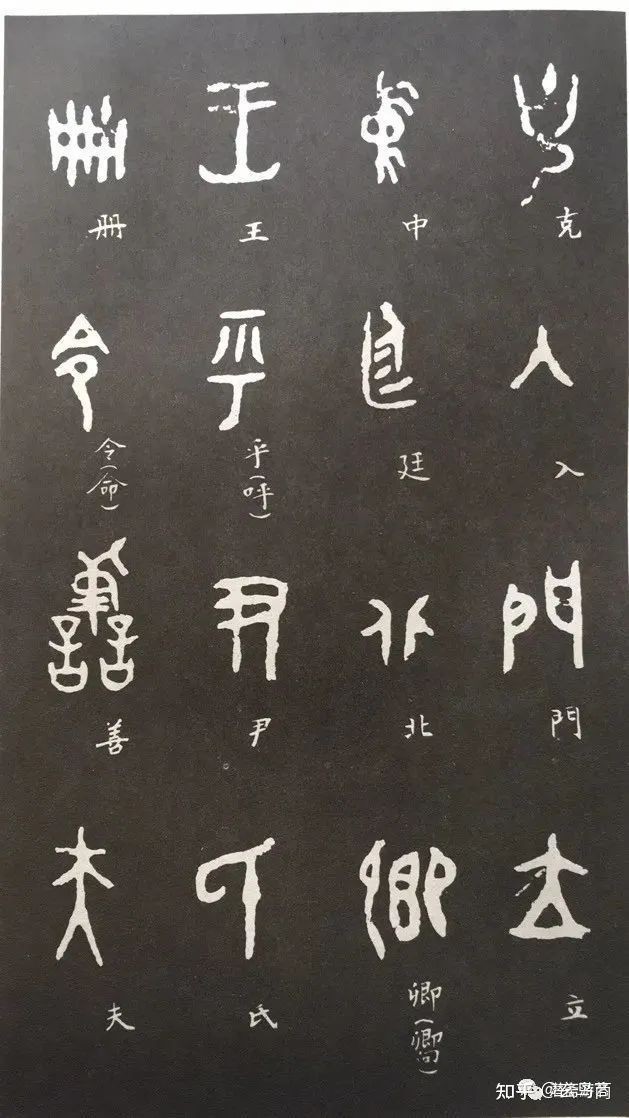 克
入
門
立
中
廷
北
卿(嚮)
王
乎(呼)
尹
氏
册
令(命)
善
夫
知乎